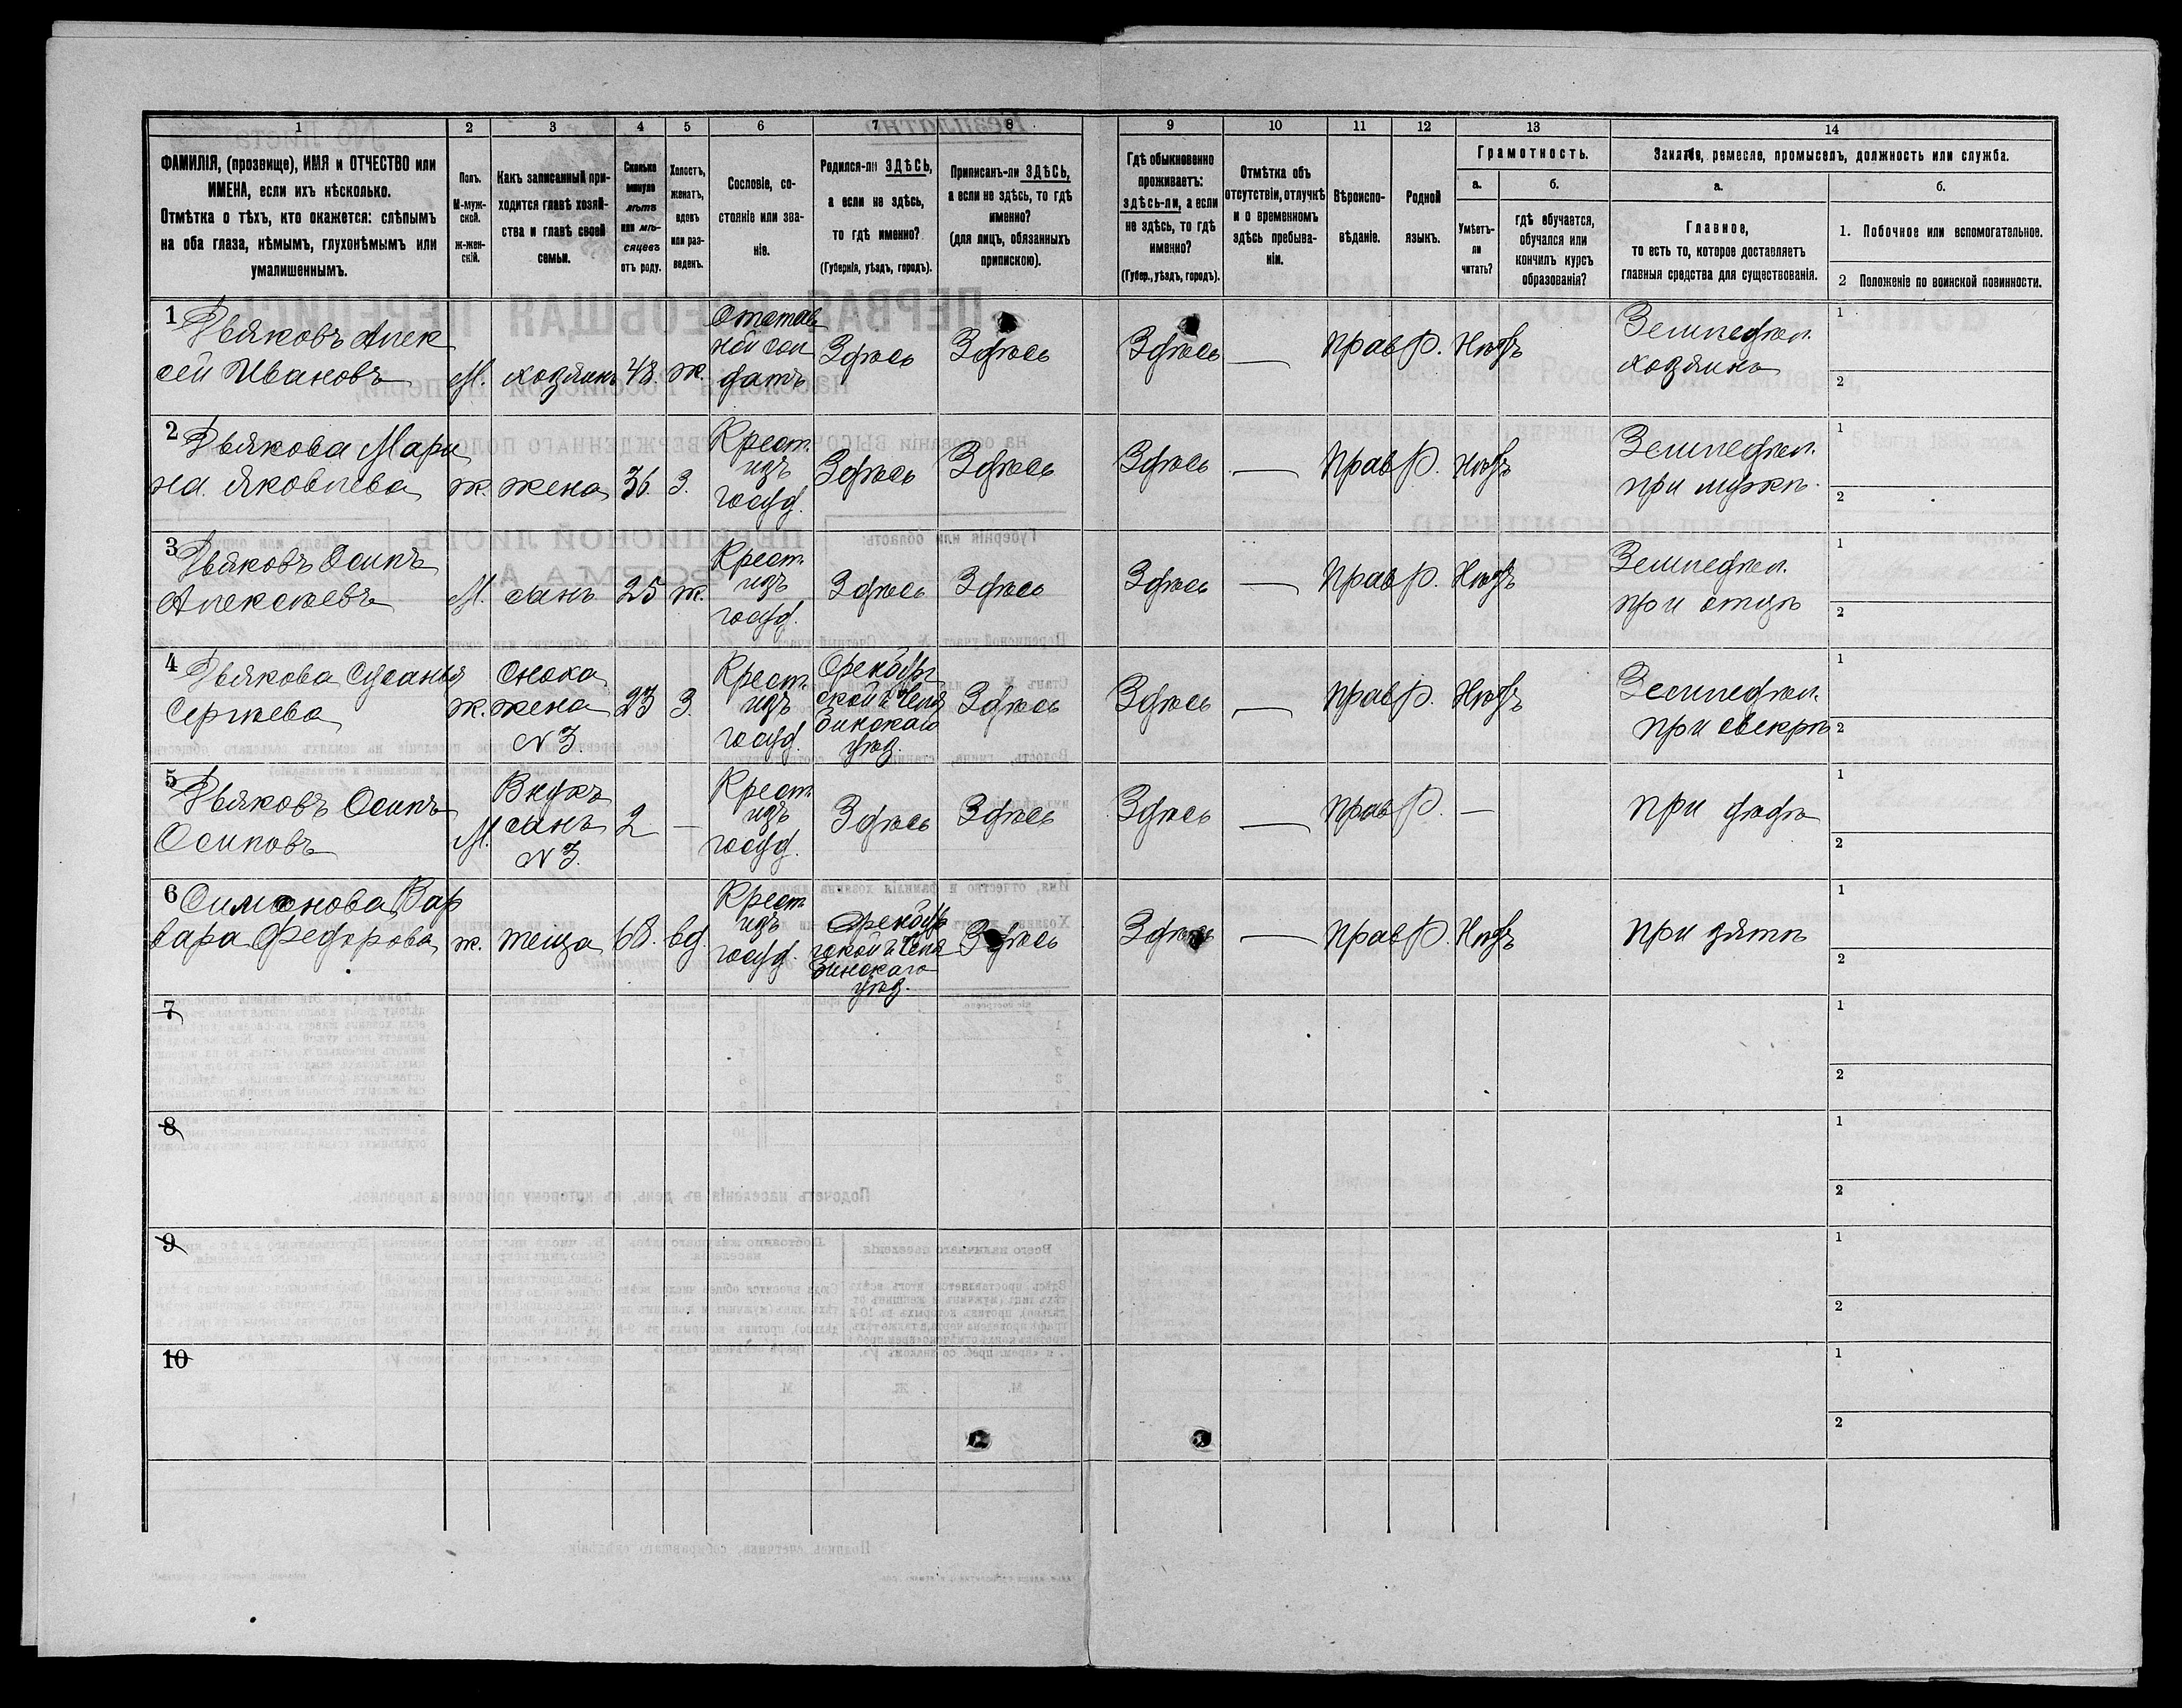 1 2 3 4 5 6 7 8 9 10 11 12 13 14
ФАМИЛІЯ, (прозвище), ИМЯ и ОТЧЕСТВО или
ИМЕНА, если ихъ нѣсколько.
Отмѣтка о тѣхъ, кто окажется: слѣпымъ
на оба глаза, нѣмымъ, глухонѣмымъ или
умалишеннымъ.
Полъ.
М-муж-
ской.
ж-жен-
скій.
Какъ записанный при-
ходится главѣ хозяй-
ства и главѣ своей
семьи.
Сколько
минуло
лѣтъ
или мѣ-
сяцевъ
отъ роду.
Холостъ,
женатъ,
вдовъ
или раз-
веденъ.
Сословіе, со-
стояніе или зва-
ніе.
Родился-ли ЗДѢСЬ,
а если не здѣсь,
то гдѣ именно?
(Губернія, уѣздъ, городъ).
Приписанъ-ли ЗДѢСЬ,
а если не здѣсь, то гдѣ
именно?
(для лицъ, обязанныхъ
припискою).
Гдѣ обыкновенно
проживаетъ:
здѣсь-ли, а если
не здѣсь, то гдѣ
именно?
(Губер., уѣздъ, городъ).
Отмѣтка объ
отсутствіи, отлучкѣ
и о временномъ
здѣсь пребыва-
ніи.
Вѣроиспо-
вѣданіе.
Родной
языкъ.
Грамотность.
а.
Умѣетъ-
ли
читать?
б.
гдѣ обучается,
обучался или
кончилъ курсъ
образованія?
Занятіе, ремесло, промыселъ, должность или служба.
а.
Главное,
то есть то, которое доставляетъ
главныя средства для существованія.
б.
1. Побочное или вспомогательное.
2 Положеніе по воинской повинности.
1 Дьяковъ Алек
сѣй Ивановъ
М. хозяинъ 48. ж.
Отстав
ной сол
датъ
Здѣсь Здѣсь Здѣсь — Прав Р. Нѣтъ
Земледѣл.
хозяинъ
1
2
2 Дьякова Мари
на Яковлева
ж. жена 36. З.
Крест.
изъ
госуд.
Здѣсь Здѣсь Здѣсь — Прав Р. Нѣтъ
Земледѣл.
при мужѣ.
1
2
3 Дьяковъ Осипъ
Алексѣевъ
М. сынъ 25 ж.
Крест.
изъ
госуд.
Здѣсь Здѣсь Здѣсь — Прав Р. Нѣтъ
Земледѣл.
при отцѣ
1
2
4 Дьякова Сусанья
Сергѣева
ж.
Сноха
жена
N 3
23 З.
Крест.
изъ
госуд.
Оренбург
ской г. Челя
бинскаго
уѣзд.
Здѣсь Здѣсь — Прав Р. Нѣтъ
Земледѣл.
при свекрѣ
1
2
5 Дьяковъ Осипъ
Осиповъ
М.
Внукъ
сынъ
N 3.
2 —
Крест.
изъ
госуд.
Здѣсь Здѣсь Здѣсь — Прав Р. —
при дѣдѣ
1
2
6 Симонова Вар
вара Федорова
ж. теща 68. вд.
Крест.
изъ
госуд.
Оренбур
гской г. Челя
бинскаго
уѣзд.
Здѣсь Здѣсь — Прав Р. Нѣтъ
при зятѣ
1
2
7
1
2
8
1
2
9
1
2
10
1
2